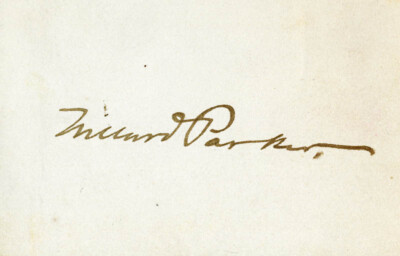 Willard Parker.